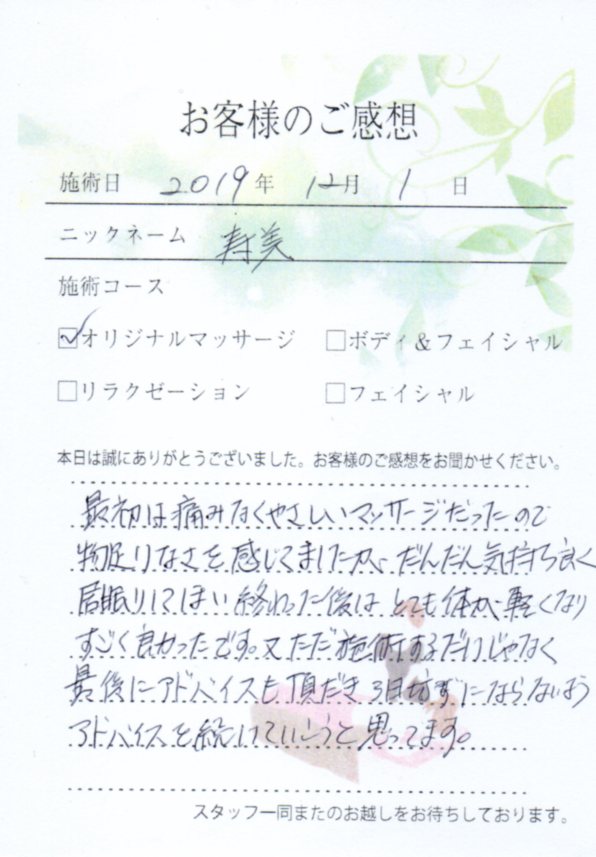 お客様のご感想
施術日 2019年 12月 1日
ニックネーム 寿美
施術コース
☑オリジナルマッサージ □ボディ&フェイシャル
□リラクゼーション □フェイシャル
本日は誠にありがとうございました。お客様のご感想をお聞かせください。
最初は痛みなくやさしいマッサージだったので
物足りなさを感じてましたが、だんだん気持ち良く
居眠りしてしまい終わった後は とても体が軽くなり
すごく良かったです。又ただ施術するだけじゃなく
最後にアドバイスも頂だき 3日坊ずにならないよう
アドバイスを続けていこうと思ってます。
スタッフ一同またのお越しをお待ちしております。